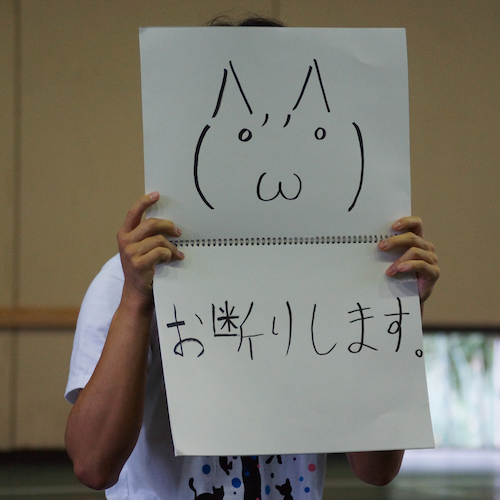 お断りします。